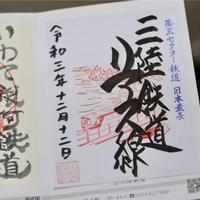 第三セクター鉄道 日本最長
三陸鉄道
リアス線
令和三年十二月十二日
いわて銀河鉄道